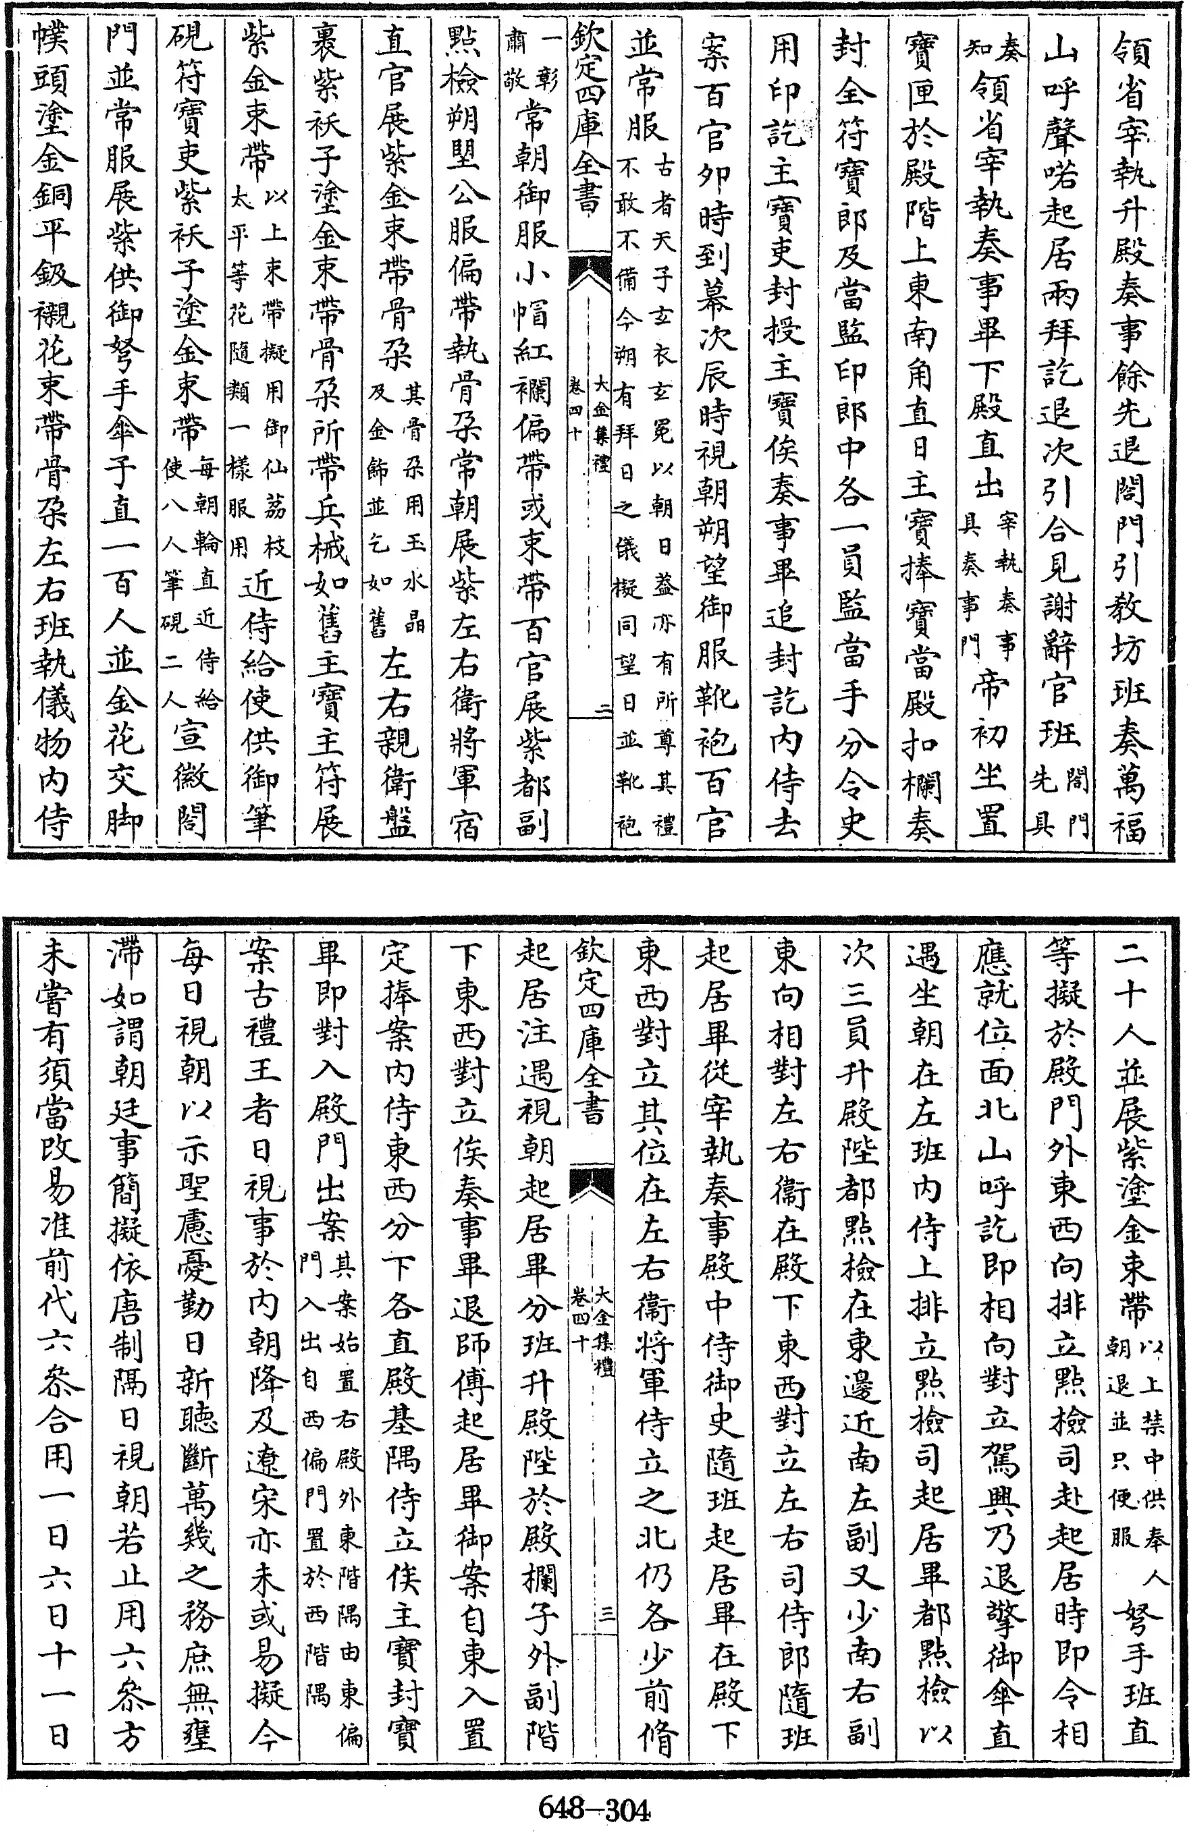 領省宰執升殿奏事餘先退閤門引教坊班奏萬福
山呼聲喏起居兩拜訖退次引合見謝辭官班閤門先具
奏知領省宰執奏事畢下殿直出宰執奏事具奏事門帝初坐置
寶匣於殿階上東南角直日主寶捧寶當殿扣欄奏
封全符寶郎及當監印郎中各一員監當手分令史
用印訖主寶吏封授主寶俟奏事畢追封訖内侍去
案百官夘時到幕次辰時視朝朔望御服靴袍百官
並常服古者天子玄衣玄冕以朝日益亦有所尊其禮不敢不備今朔有拜日之儀擬同望日並靴袍
欽定四庫全書
大金集禮
卷四十
二
一彰肅敬常朝御服小帽紅襴偏帶或束帶百官展紫都副
點檢朔望公服偏帶執骨朶常朝展紫左右衛將軍宿
直官展紫金束帶骨朶其骨朶用玉水晶及金飾並乞如舊左右親衛盤
裹紫袄子塗金束帶骨朶所帶兵械如舊主寶主符展
紫金束帶以上束帶擬用御仙荔枝太平等花隨類一樣服用近侍給使供御筆
硯符寶吏紫袄子塗金束帶每朝輪直近侍給使八人筆硯二人宣徽閤
門並常服展紫供御弩手傘子直一百人並金花交脚
幞頭塗金銅平鈒襯花束帶骨朶左右班執儀物内侍
二十人並展紫塗金束帶以上禁中供奉人朝退並只便服弩手班直
等擬於殿門外東西向排立點檢司赴起居時即令相
應就位面北山呼訖即相向對立駕興乃退擎御傘直
遇坐朝在左班内侍上排立點檢司起居畢都點檢以
次三員升殿陛都點檢在東邊近南左副又少南右副
東向相對左右衛在殿下東西對立左右司侍郎隨班
起居畢從宰執奏事殿中侍御史隨班起居畢在殿下
東西對立其位在左右衛將軍侍立之北仍各少前脩
欽定四庫全書
大金集禮
卷四十
三
起居注遇視朝起居畢分班升殿陛於殿欄子外副階
下東西對立俟奏事畢退師傅起居畢御案自東入置
定捧案内侍東西分下各直殿基隅侍立俟主寶封寶
畢即對入殿門出案其案始置右殿外東階隅由東偏門入出自西偏門置於西階隅
案古禮王者日視事於内朝降及遼宋亦未或易擬今
每日視朝以示聖慮憂勤日新聽斷萬幾之務庶無壅
滯如謂朝廷事簡擬依唐制隔日視朝若止用六叅方
未嘗有須當改易准前代六叅合用一日六日十一日
648-304